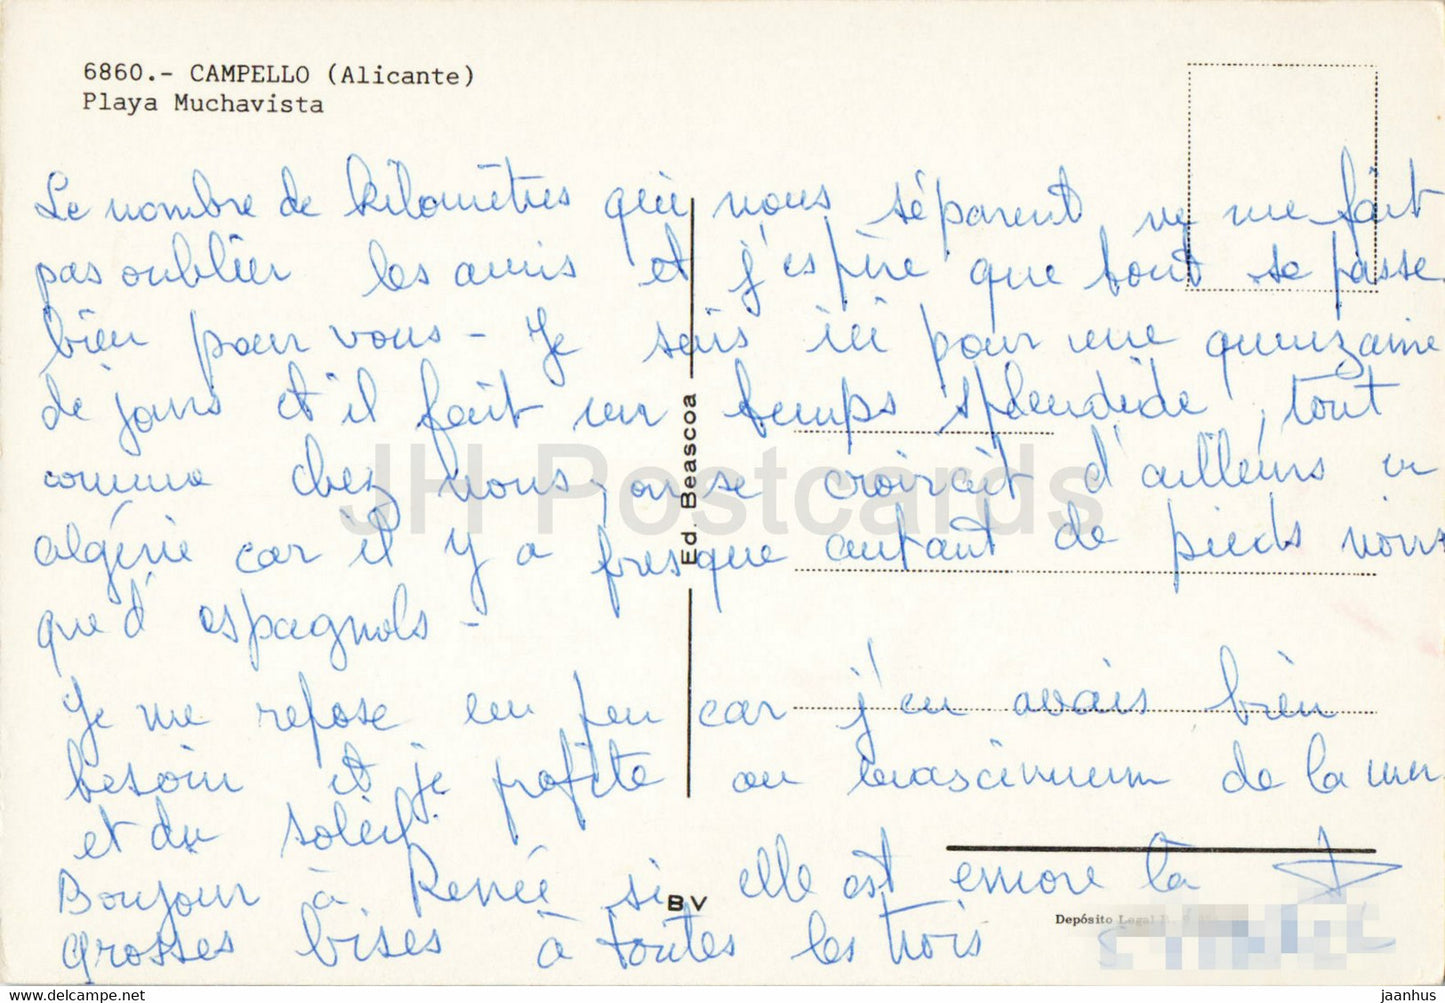 6860.- CAMPELLO (Alicante)
Playa Muchavista
Le nombre de kilomètres qui nous séparent ne me fait
pas oublier les amis et j'espère que tout se passe
bien pour vous - Je suis ici pour une quinzaine
de jours et il fait un temps splendide, tout
comme chez nous, on se croirait d'ailleurs en
algérie car il y a presque autant de pieds noirs
que d'espagnols -
Je me repose un peu car j'en avais bien
besoin et je profite au maximum de la mer
et du soleil.
Bonjour à Renée si elle est encore là
grosses bises à toutes les trois
Ed. Beascoa
BV
Depósito Legal
JH Postcards
hippostcard.com/listing
jaanhus